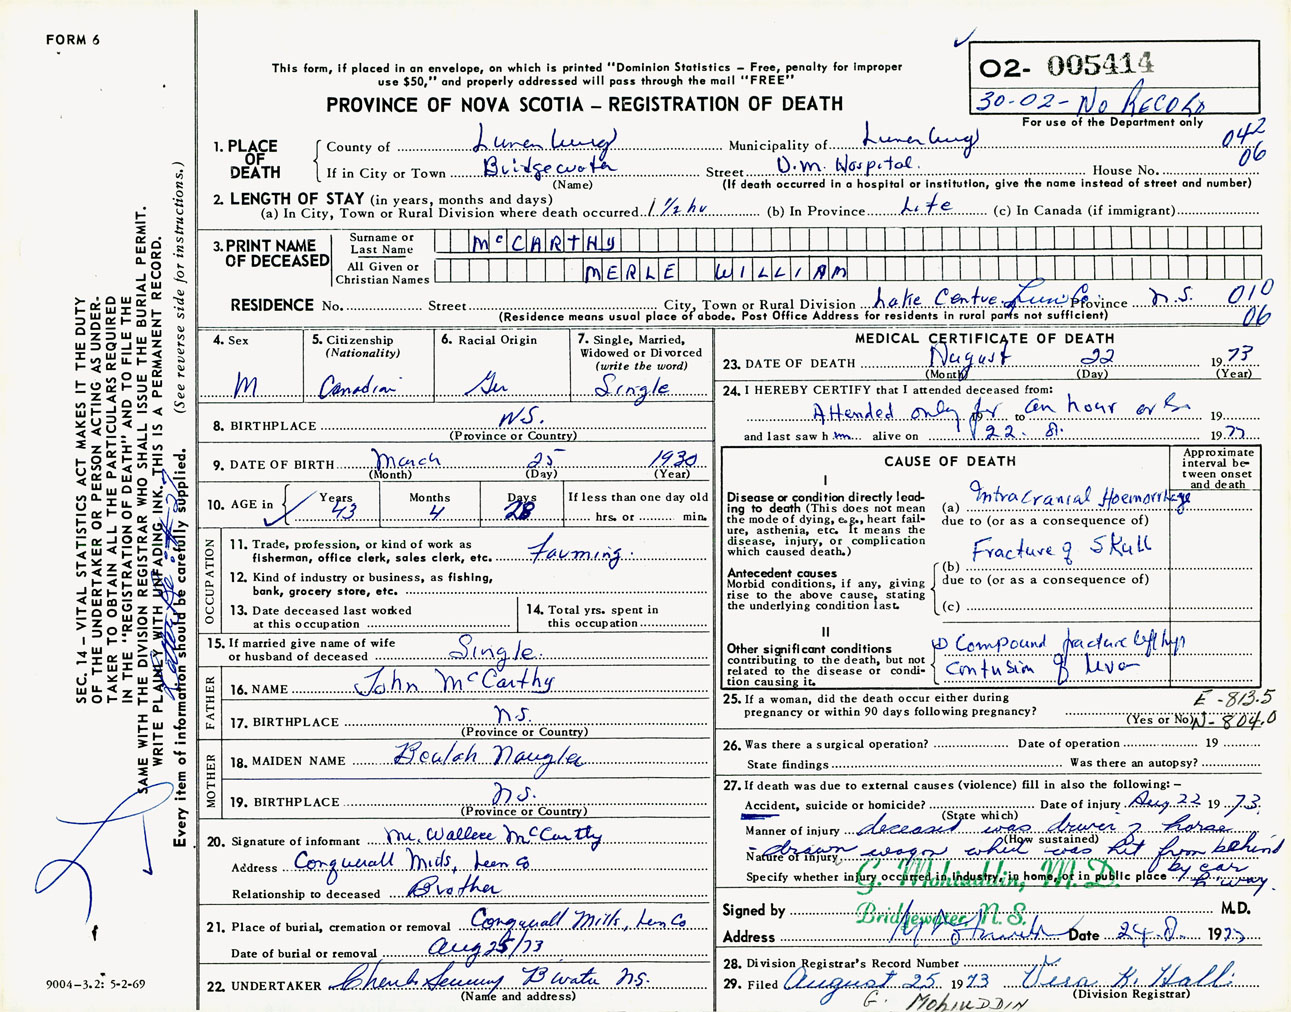 FORM 6
This form, if placed in an envelope, on which is printed "Dominion Statistics – Free, penalty for improper
use $50," and properly addressed will pass through the mail "FREE"
PROVINCE OF NOVA SCOTIA – REGISTRATION OF DEATH
O2- 005414
30-02- No RECORD
For use of the Department only
1. PLACE OF DEATH
County of Lunenburg Municipality of Lunenburg 042
If in City or Town Bridgewater Street D.M. Hospital. House No. 06
(Name) (If death occurred in a hospital or institution, give the name instead of street and number)
2. LENGTH OF STAY (in years, months and days)
(a) In City, Town or Rural Division where death occurred 1 1/2 hr (b) In Province Life (c) In Canada (if immigrant)
3. PRINT NAME OF DECEASED
Surname or Last Name McCARTHY
All Given or Christian Names MERLE WILLIAM
RESIDENCE No. Street City, Town or Rural Division Lake Centre Lun Co. Province N.S. 010
(Residence means usual place of abode. Post Office Address for residents in rural parts not sufficient) 06
4. Sex
M
5. Citizenship
(Nationality)
Canadian
6. Racial Origin
Ger
7. Single, Married,
Widowed or Divorced
(write the word)
Single
8. BIRTHPLACE N.S.
(Province or Country)
9. DATE OF BIRTH March 25 1930
(Month) (Day) (Year)
10. AGE in Years Months Days If less than one day old
43 4 28 hrs. or min.
OCCUPATION
11. Trade, profession, or kind of work as
fisherman, office clerk, sales clerk, etc. Farming.
12. Kind of industry or business, as fishing,
bank, grocery store, etc.
13. Date deceased last worked
at this occupation
14. Total yrs. spent in
this occupation
15. If married give name of wife
or husband of deceased Single.
FATHER
16. NAME John McCarthy
17. BIRTHPLACE N.S.
(Province or Country)
MOTHER
18. MAIDEN NAME Beulah Naugler
19. BIRTHPLACE N.S.
(Province or Country)
20. Signature of informant Mr. Wallace McCarthy
Address Conquerall Mills, Lun Co
Relationship to deceased Brother
21. Place of burial, cremation or removal Conquerall Mills, Lun Co
Date of burial or removal Aug 25/73
22. UNDERTAKER B'water N.S.
(Name and address)
MEDICAL CERTIFICATE OF DEATH
23. DATE OF DEATH August 22 1973
(Month) (Day) (Year)
24. I HEREBY CERTIFY that I attended deceased from:
Attended only for to an hour or so 19
and last saw h im alive on 22. 8. 1973
CAUSE OF DEATH
Approximate
interval be-
tween onset
and death
I
Disease or condition directly lead-
ing to death (This does not mean
the mode of dying, e.g., heart fail-
ure, asthenia, etc. It means the
disease, injury, or complication
which caused death.)
(a) Intracranial Haemorrhage
due to (or as a consequence of)
Antecedent causes
Morbid conditions, if any, giving
rise to the above cause, stating
the underlying condition last.
(b) Fracture of Skull
due to (or as a consequence of)
(c)
II
Other significant conditions
contributing to the death, but not
related to the disease or condi-
tion causing it.
Compound fracture left hip
Contusion of liver
25. If a woman, did the death occur either during
pregnancy or within 90 days following pregnancy?
(Yes or No)
E-813.5
N-804.0
26. Was there a surgical operation? Date of operation 19
State findings Was there an autopsy?
27. If death was due to external causes (violence) fill in also the following: –
Accident, suicide or homicide? Date of injury Aug 22 1973.
(State which)
Manner of injury deceased was driver of horse
(How sustained)
Nature of injury - drawn wagon which was hit from behind
by car
Specify whether injury occurred in industry, in home, or in public place h'way.
G. Mohiuddin, M.D.
Bridgewater N.S.
Signed by M.D.
Address Date 24.8. 1973
28. Division Registrar's Record Number
29. Filed August 25 1973 Vera K. Hall
(Division Registrar)
G. MOHIUDDIN
SEC. 14 – VITAL STATISTICS ACT MAKES IT THE DUTY
OF THE UNDERTAKER OR PERSON ACTING AS UNDER-
TAKER TO OBTAIN ALL THE PARTICULARS REQUIRED
IN THE "REGISTRATION OF DEATH" AND TO FILE THE
SAME WITH THE DIVISION REGISTRAR WHO SHALL ISSUE THE BURIAL PERMIT.
WRITE PLAINLY WITH UNFADING INK. THIS IS A PERMANENT RECORD.
Every item of information should be carefully supplied. (See reverse side for instructions.)
9004-3.2: 5-2-69